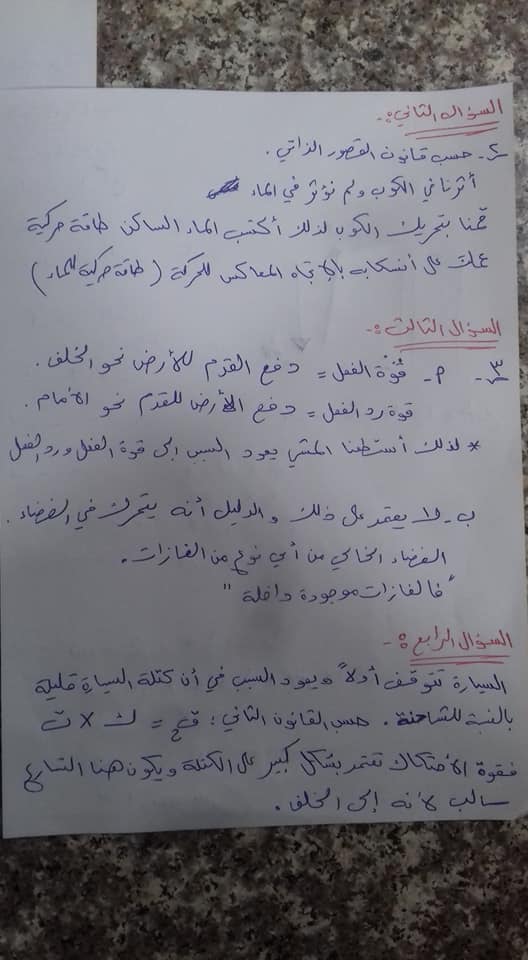 السؤال الثاني :-
2- حسب قانون القصور الذاتي .
أثرنا في الكوب ولم نؤثر في الماء
قمنا بتحريك الكوب لذلك أكتسب الماء الساكن طاقة حركية
عملت على أنسكابه بالإتجاه المعاكس للحركة ( طاقة حركية للماء )
السؤال الثالث :-
3- م- قوة الفعل = دفع القدم للأرض نحو الخلف .
قوة رد الفعل = دفع الأرض للقدم نحو الأمام .
* لذلك أستطعنا المشي يعود السبب إلى قوة الفعل ورد الفعل
ب- لا يعتمد على ذلك والدليل أنه يتحرك في الفضاء .
الفضاء الخالي من أي نوع من الغازات .
"فالغازات موجودة داخله"
السؤال الرابع :-
السيارة تتوقف أولاً ويعود السبب في أن كتلة السيارة قليلة
بالنسبة للشاحنة . حسب القانون الثاني : قح = ك × ت
فقوة الأحتكاك تعتمد بشكل كبير على الكتلة ويكون هنا التسارع
سالب لأنه إلى الخلف .